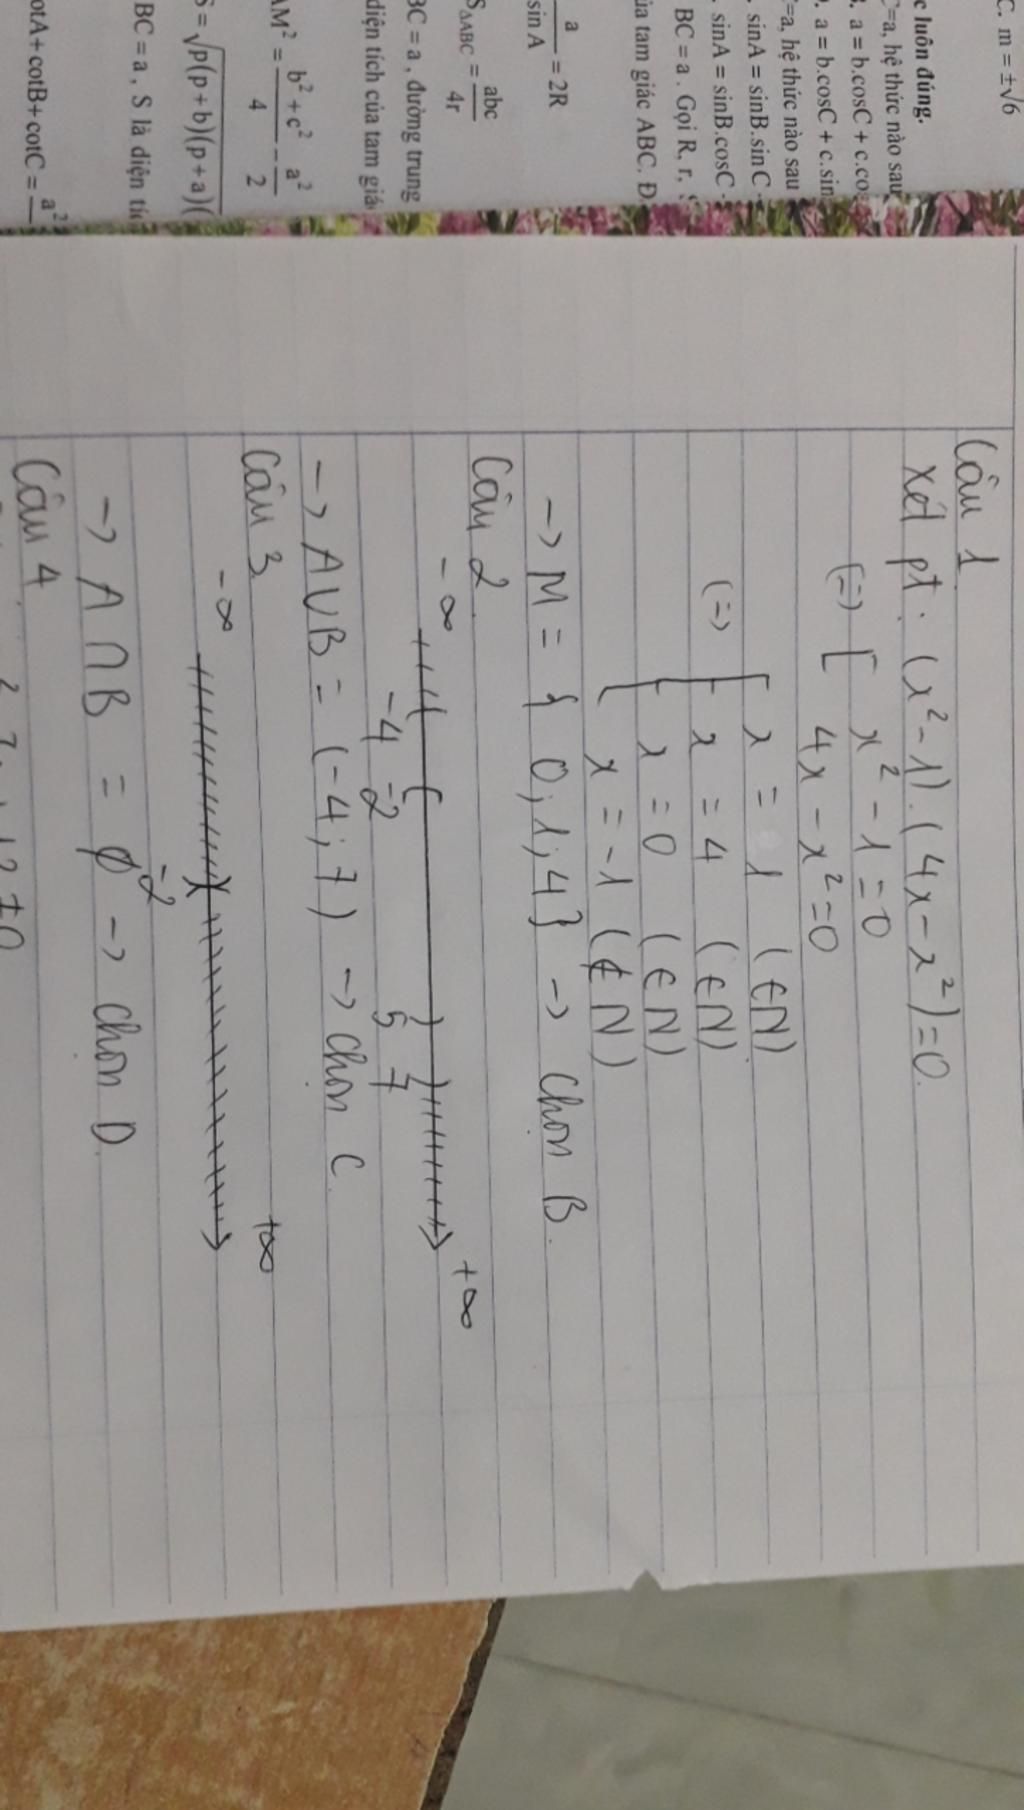 C. m = ±√6
c luôn đúng.
C=a, hệ thức nào sau
B. a = b.cosC + c.co
D. a = b.cosC + c.sin
=a, hệ thức nào sau
. sinA = sinB.sinC
. sinA = sinB.cosC
BC = a . Gọi R, r, S
ủa tam giác ABC. Đ
a/sin A = 2R
S△ABC = abc/4r
BC = a , đường trung
diện tích của tam giá
AM² = (b² + c²)/4 - a²/2
S = √p(p + b)(p + a)(
BC = a , S là diện tíc
otA + cotB + cotC = a²
Câu 1
Xét pt : (x² - 1).(4x - x²) = 0.
(=) [ x² - 1 = 0
4x - x² = 0
(=) [ x = 1 (∈N)
x = 4 (∈N)
x = 0 (∈N)
x = -1 (∉N)
-> M = { 0; 1; 4} -> Chọn B.
Câu 2
-∞ ( ( ) ) +∞
-4 -2 5 7
-> A∪B = (-4; 7) -> Chọn C.
Câu 3
-∞ )( +∞
-2
-> A ∩ B = ∅ -> Chọn D.
Câu 4